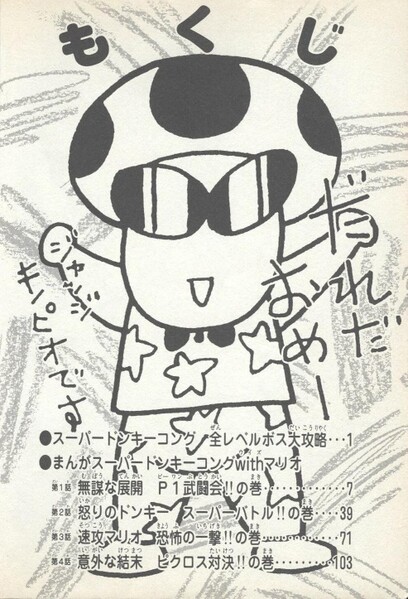 もくじ
だれだ
おめー
ジャッジ
キノピオです
●スーパードンキーコング 全レベルボス大攻略…1
●まんがスーパードンキーコングwithマリオ
第1話 無謀な展開 P1武闘会!!の巻…………7
第2話 怒りのドンキー スーパーバトル!!の巻……39
第3話 速攻マリオ 恐怖の一撃!!の巻…………71
第4話 意外な結末 ピクロス対決!!の巻………103